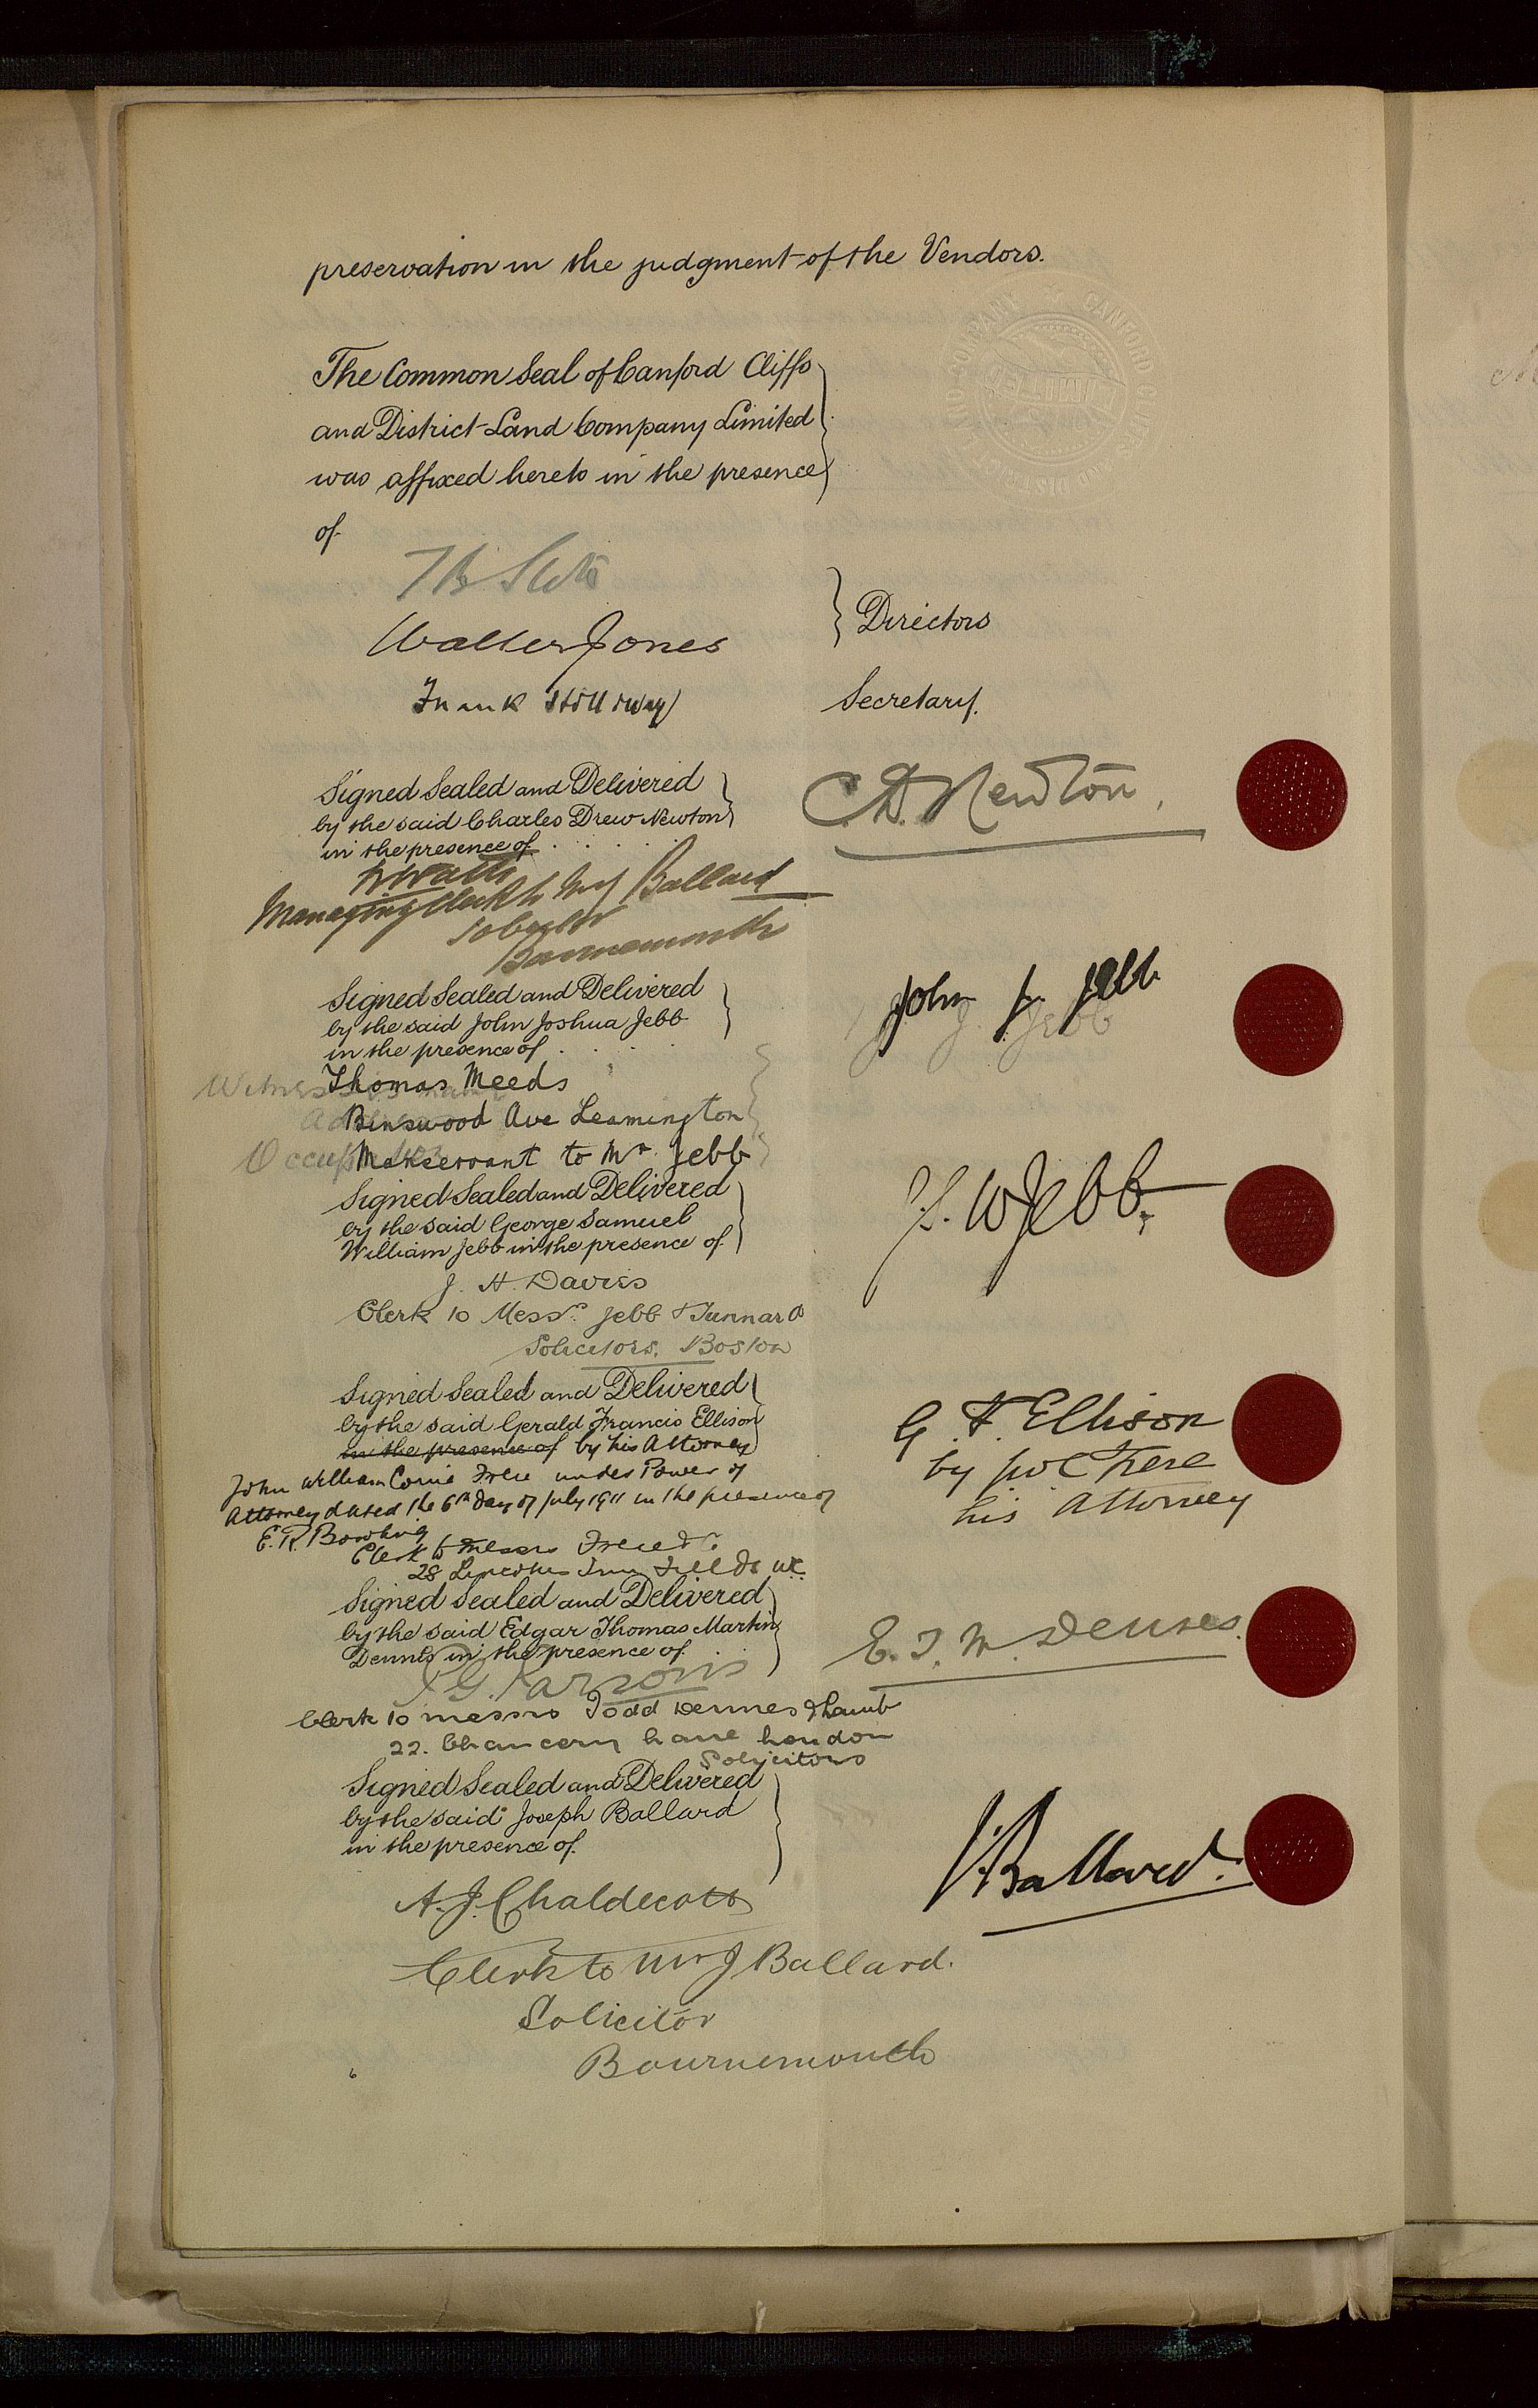 preservation in the judgment of the Vendors.
COMPANY CANFORD
The Common Seal of Canford Cliffs
and District Land Company Limited
was affixed hereto in the presence
of
Walter Jones
Directors
Frank Stilliway
Secretary.
Signed Sealed and Delivered
by the said Charles Drew Newton
in the presence of
C. D. Newton.
Managing Clerk to Mr J Ballard
Solicitor
Bournemouth
Signed Sealed and Delivered
by the said John Joshua Jebb
in the presence of
John J. Jebb
Witness Thomas Meeds
Binswood Ave Leamington
Manservant to Mr. Jebb
Signed Sealed and Delivered
by the said George Samuel
William Jebb in the presence of
G. S. W Jebb.
J. H. Davies
Clerk to Messrs. Jebb & Tunnard
Solicitors. Boston
Signed Sealed and Delivered
by the said Gerald Francis Ellison
in the presence of by his Attorney
John William Corrie Frere under Power of
Attorney dated the 6th day of July 1911 in the presence of
G. F. Ellison
by JWC Frere
his Attorney
E. R. Bowling
Clerk to Messrs Frere & Co.
28 Lincolns Inn Fields WC.
Signed Sealed and Delivered
by the said Edgar Thomas Martin
Dennes in the presence of
E. T. M. Dennes.
Parsons
Clerk to Messrs Todd Dennes & Lamb
22. Chancery Lane London
Solicitors
Signed Sealed and Delivered
by the said Joseph Ballard
in the presence of
J. Ballard.
A. J. Chaldecott
Clerk to Mr J Ballard.
Solicitor
Bournemouth